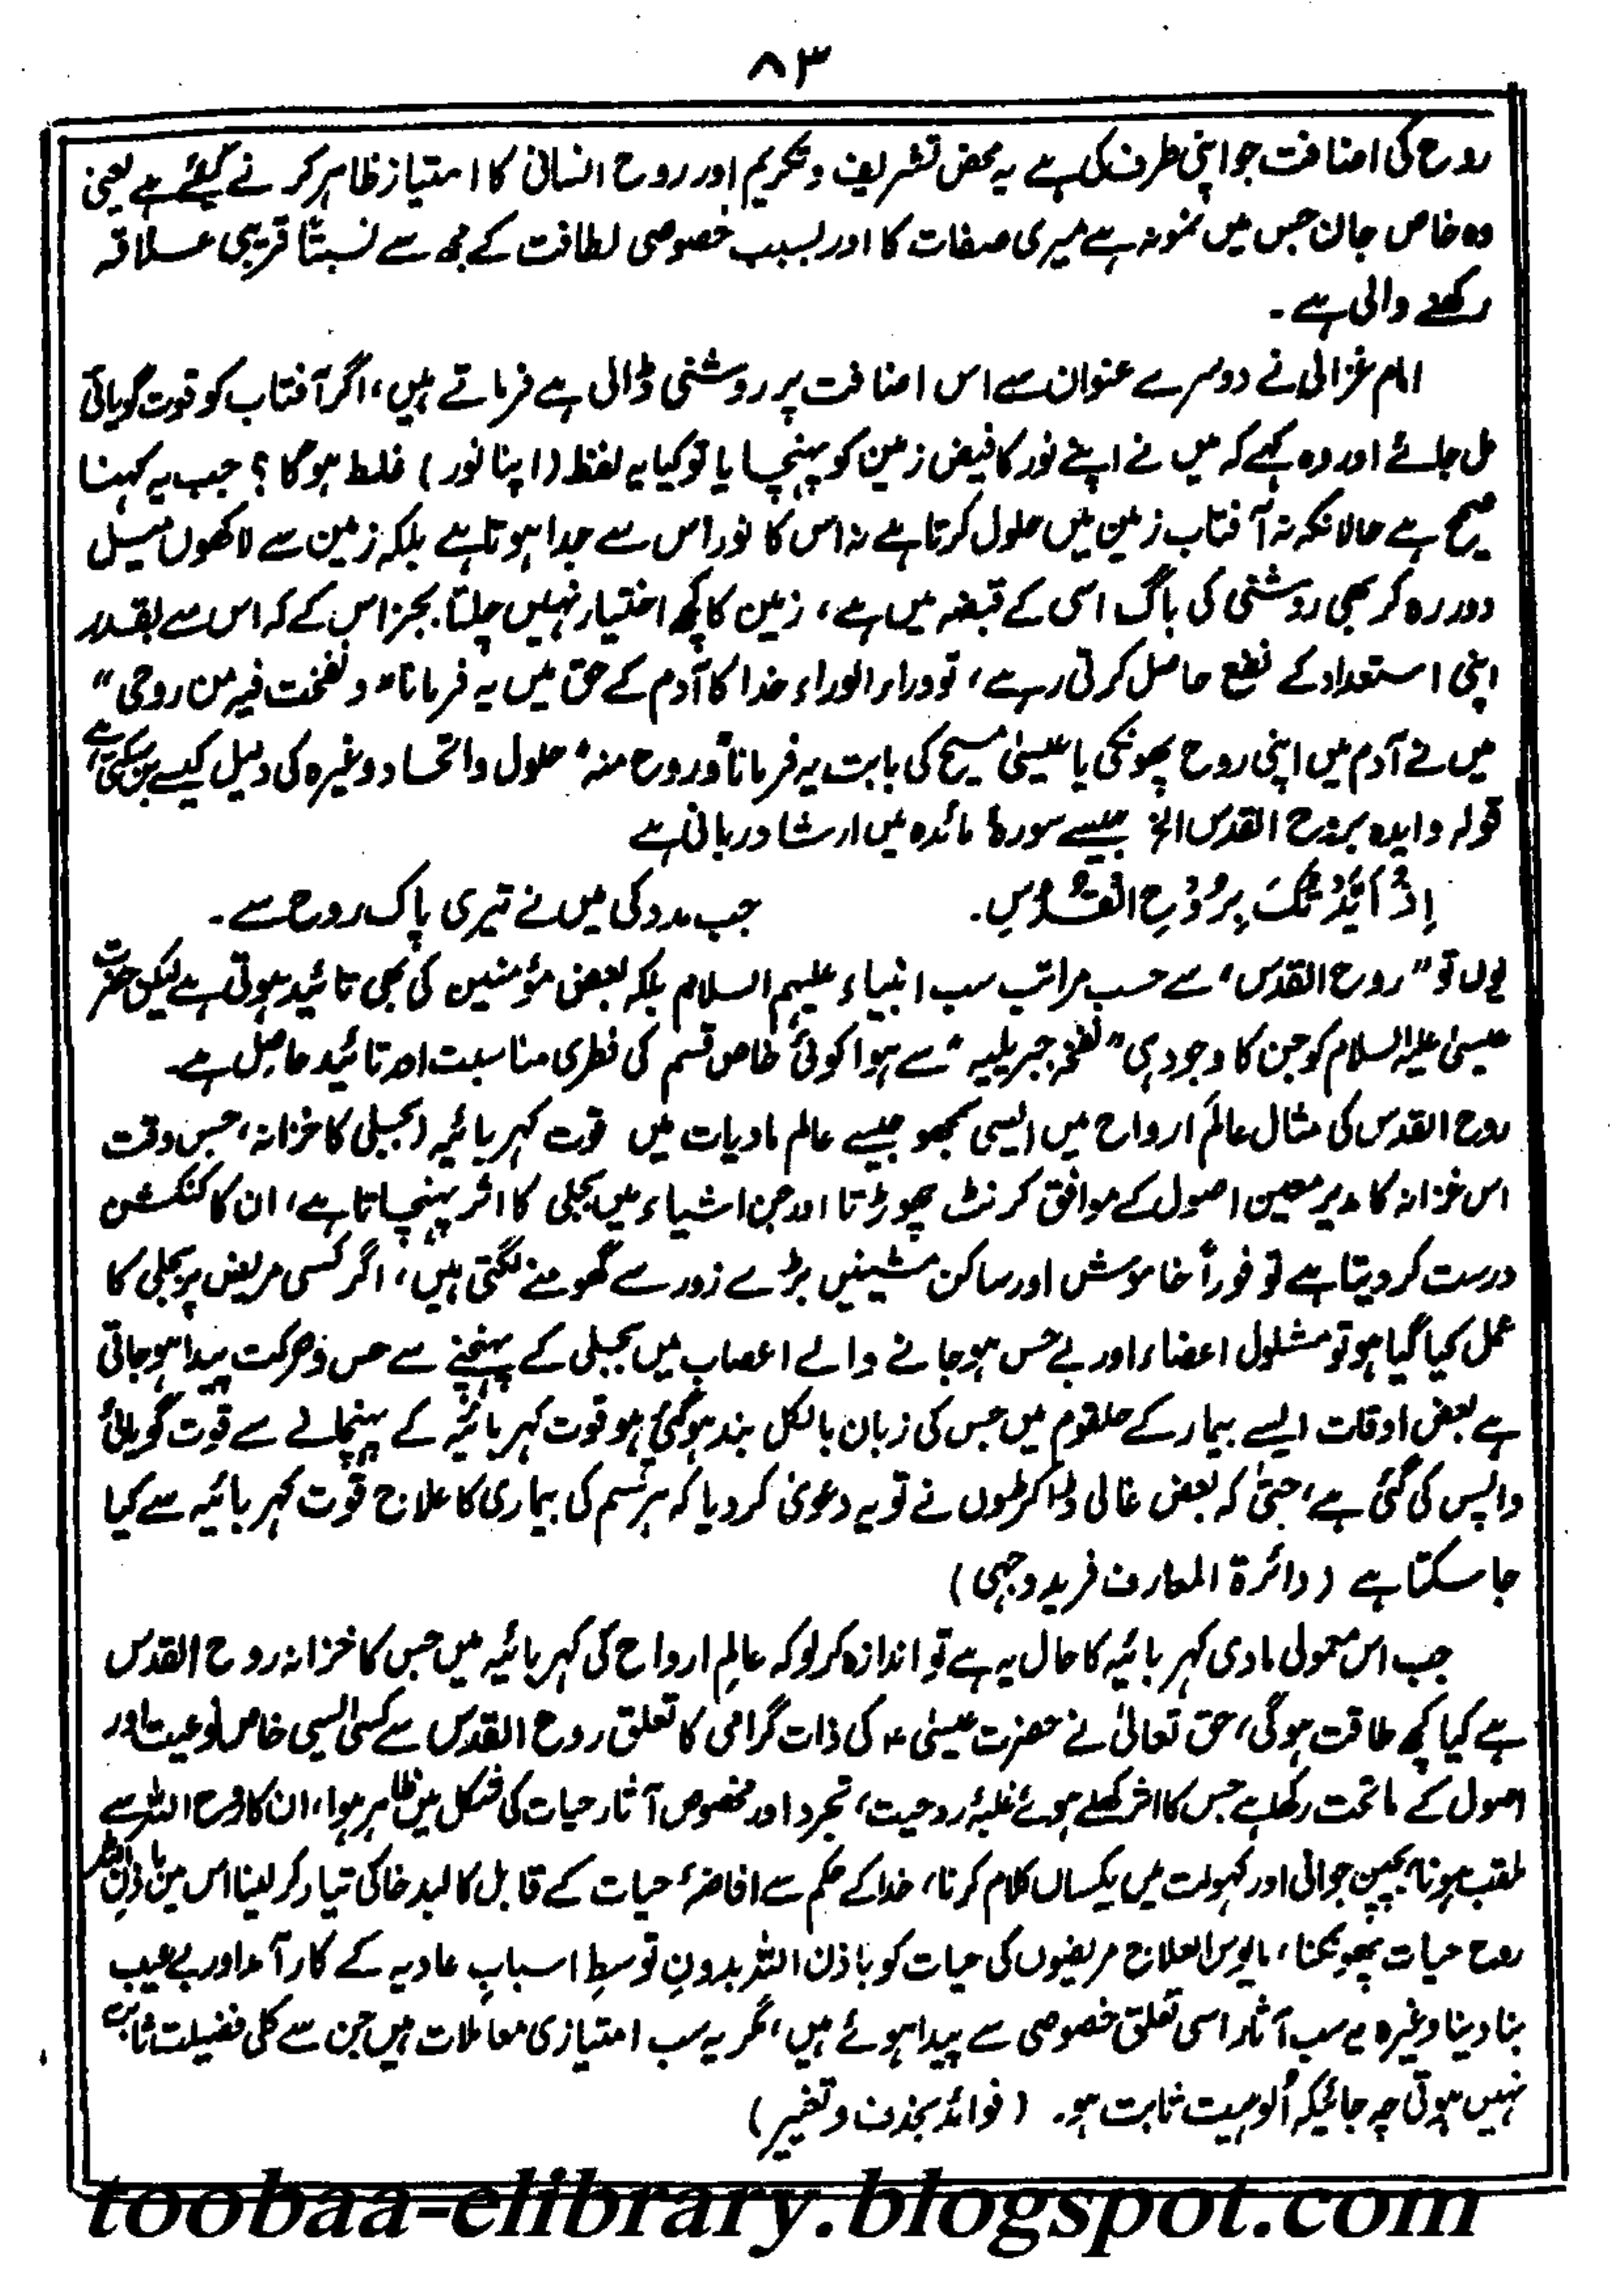 ۸۳
روح کی اضافت جو اپنی طرف کی ہے یہ محض تشریف و تکریم اور روح انسانی کا امتیاز ظاہر کرنے کیلئے ہے یعنی
وہ خاص جان جس میں نمونہ ہے میری صفات کا اور بسبب خصوصی لطافت کے مجھ سے نسبتاً قریبی علاقہ
رکھنے والی ہے۔
امام غزالی نے دوسرے عنوان سے اس اضافت پر روشنی ڈالی ہے فرماتے ہیں، اگر آفتاب کو قوت گویائی
مل جائے اور وہ کہے کہ میں نے اپنے نور کا فیض زمین کو پہنچایا تو کیا یہ لفظ (اپنا نور) غلط ہوگا؟ جب یہ کہنا
صحیح ہے حالانکہ نہ آفتاب زمین میں حلول کرتا ہے نہ اس کا نور اس سے جدا ہوتا ہے بلکہ زمین سے لاکھوں میل
دور رہ کر بھی روشنی کی باگ اسی کے قبضہ میں ہے، زمین کا کچھ اختیار نہیں چلتا بجز اس کے کہ اس سے بقدر
اپنی استعداد کے نفع حاصل کرتی رہے، تو وراء الوراء خدا کا آدم کے حق میں یہ فرمانا "و نفخت فیہ من روحی"
میں نے آدم میں اپنی روح پھونکی یا عیسیٰ مسیح کی بابت یہ فرمانا "و روح منہ" حلول و اتحاد وغیرہ کی دلیل کیسے بن سکتی ہے
قولہ وایدہ بروح القدس الخ جیسے سورۂ مائدہ میں ارشاد ربانی ہے
اِذْ اَیَّدْتُّکَ بِرُوْحِ الْقُدُسِ۔ جب مدد کی میں نے تیری پاک روح سے۔
یوں تو "روح القدس" سے حسب مراتب سب انبیاء علیہم السلام بلکہ بعض مؤمنین کی بھی تائید ہوتی ہے لیکن حضرت
عیسیٰ علیہ السلام کو جن کا وجود ہی "نفخۂ جبریلیہ" سے ہوا کوئی خاص قسم کی فطری مناسبت اور تائید حاصل ہے۔
روح القدس کی مثال عالَم ارواح میں ایسی سمجھو جیسے عالم مادیات میں قوت کہربائیہ (بجلی کا خزانہ، جس وقت
اس خزانہ کا مدیر معین اصول کے موافق کرنٹ چھوڑتا اور جن اشیاء میں بجلی کا اثر پہنچاتا ہے، ان کا کنکشن
درست کر دیتا ہے تو فوراً خاموش اور ساکن مشینیں بڑے زور سے گھومنے لگتی ہیں، اگر کسی مریض پر بجلی کا
عمل کیا گیا ہو تو مشلول اعضاء اور بے حس ہو جانے والے اعصاب میں بجلی کے پہنچنے سے حس و حرکت پیدا ہو جاتی
ہے بعض اوقات ایسے بیمار کے حلقوم میں جس کی زبان بالکل بند ہوگئی ہو قوت کہربائیہ کے پہنچانے سے قوت گویائی
واپس کی گئی ہے، حتیٰ کہ بعض غالی ڈاکٹروں نے تو یہ دعویٰ کر دیا کہ ہر قسم کی بیماری کا علاج قوت کہربائیہ سے کیا
جا سکتا ہے (دائرۃ المعارف فرید وجدی)
جب اس معمولی مادی کہربائیہ کا حال یہ ہے تو اندازہ کر لو کہ عالمِ ارواح کی کہربائیہ میں جس کا خزانہ روح القدس
ہے کیا کچھ طاقت ہوگی، حق تعالیٰ نے حضرت عیسیٰ ؑ کی ذات گرامی کا تعلق روح القدس سے کسی ایسی خاص نوعیت اور
اصول کے ماتحت رکھا ہے جس کا اثر کھلے ہوئے غلبۂ روحیت، تجرد اور مخصوص آثار حیات کی شکل میں ظاہر ہوا، ان کا روح اللہ سے
ملقب ہونا، بچپن جوانی اور کہولت میں یکساں کلام کرنا، خدا کے حکم سے افاضۂ حیات کے قابل کالبد خاکی تیار کر لینا اس میں باذن اللہ
روح حیات پھونکنا، مایوس العلاج مریضوں کی حیات کو باذن اللہ بدونِ توسطِ اسبابِ عادیہ کے کار آمد اور بے عیب
بنا دینا وغیرہ یہ سب آثار اسی تعلق خصوصی سے پیدا ہوئے ہیں، مگر یہ سب امتیازی معاملات ہیں جن سے کلی فضیلت ثابت
نہیں ہوتی چہ جائیکہ اُلوہیت ثابت ہو۔ (فوائد بحذف و تغییر)
toobaa-elibrary.blogspot.com